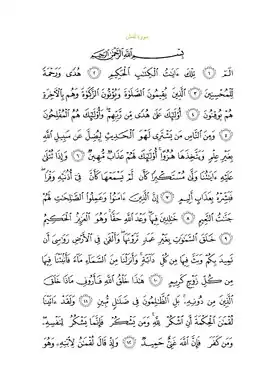 سورة لقمان
بِسْمِ ٱللَّهِ ٱلرَّحْمَٰنِ ٱلرَّحِيمِ
الٓمٓ ١ تِلْكَ ءَايَٰتُ ٱلْكِتَٰبِ ٱلْحَكِيمِ ٢ هُدًى وَرَحْمَةً
لِّلْمُحْسِنِينَ ٣ ٱلَّذِينَ يُقِيمُونَ ٱلصَّلَوٰةَ وَيُؤْتُونَ ٱلزَّكَوٰةَ وَهُم بِٱلْءَاخِرَةِ
هُمْ يُوقِنُونَ ٤ أُو۟لَٰٓئِكَ عَلَىٰ هُدًى مِّن رَّبِّهِمْ ۖ وَأُو۟لَٰٓئِكَ هُمُ ٱلْمُفْلِحُونَ
٥ وَمِنَ ٱلنَّاسِ مَن يَشْتَرِى لَهْوَ ٱلْحَدِيثِ لِيُضِلَّ عَن سَبِيلِ ٱللَّهِ
بِغَيْرِ عِلْمٍ وَيَتَّخِذَهَا هُزُوًا ۚ أُو۟لَٰٓئِكَ لَهُمْ عَذَابٌ مُّهِينٌ ٦ وَإِذَا تُتْلَىٰ
عَلَيْهِ ءَايَٰتُنَا وَلَّىٰ مُسْتَكْبِرًا كَأَن لَّمْ يَسْمَعْهَا كَأَنَّ فِىٓ أُذُنَيْهِ وَقْرًا ۖ
فَبَشِّرْهُ بِعَذَابٍ أَلِيمٍ ٧ إِنَّ ٱلَّذِينَ ءَامَنُوا۟ وَعَمِلُوا۟ ٱلصَّٰلِحَٰتِ لَهُمْ
جَنَّٰتُ ٱلنَّعِيمِ ٨ خَٰلِدِينَ فِيهَا ۖ وَعْدَ ٱللَّهِ حَقًّا ۚ وَهُوَ ٱلْعَزِيزُ ٱلْحَكِيمُ
٩ خَلَقَ ٱلسَّمَٰوَٰتِ بِغَيْرِ عَمَدٍ تَرَوْنَهَا ۖ وَأَلْقَىٰ فِى ٱلْأَرْضِ رَوَٰسِىَ أَن
تَمِيدَ بِكُمْ وَبَثَّ فِيهَا مِن كُلِّ دَآبَّةٍ ۚ وَأَنزَلْنَا مِنَ ٱلسَّمَآءِ مَآءً فَأَنۢبَتْنَا فِيهَا
مِن كُلِّ زَوْجٍ كَرِيمٍ ١٠ هَٰذَا خَلْقُ ٱللَّهِ فَأَرُونِى مَاذَا خَلَقَ
ٱلَّذِينَ مِن دُونِهِۦ ۚ بَلِ ٱلظَّٰلِمُونَ فِى ضَلَٰلٍ مُّبِينٍ ١١ وَلَقَدْ ءَاتَيْنَا
لُقْمَٰنَ ٱلْحِكْمَةَ أَنِ ٱشْكُرْ لِلَّهِ ۚ وَمَن يَشْكُرْ فَإِنَّمَا يَشْكُرُ لِنَفْسِهِۦ ۖ
وَمَن كَفَرَ فَإِنَّ ٱللَّهَ غَنِىٌّ حَمِيدٌ ١٢ وَإِذْ قَالَ لُقْمَٰنُ لِٱبْنِهِۦ وَهُوَ